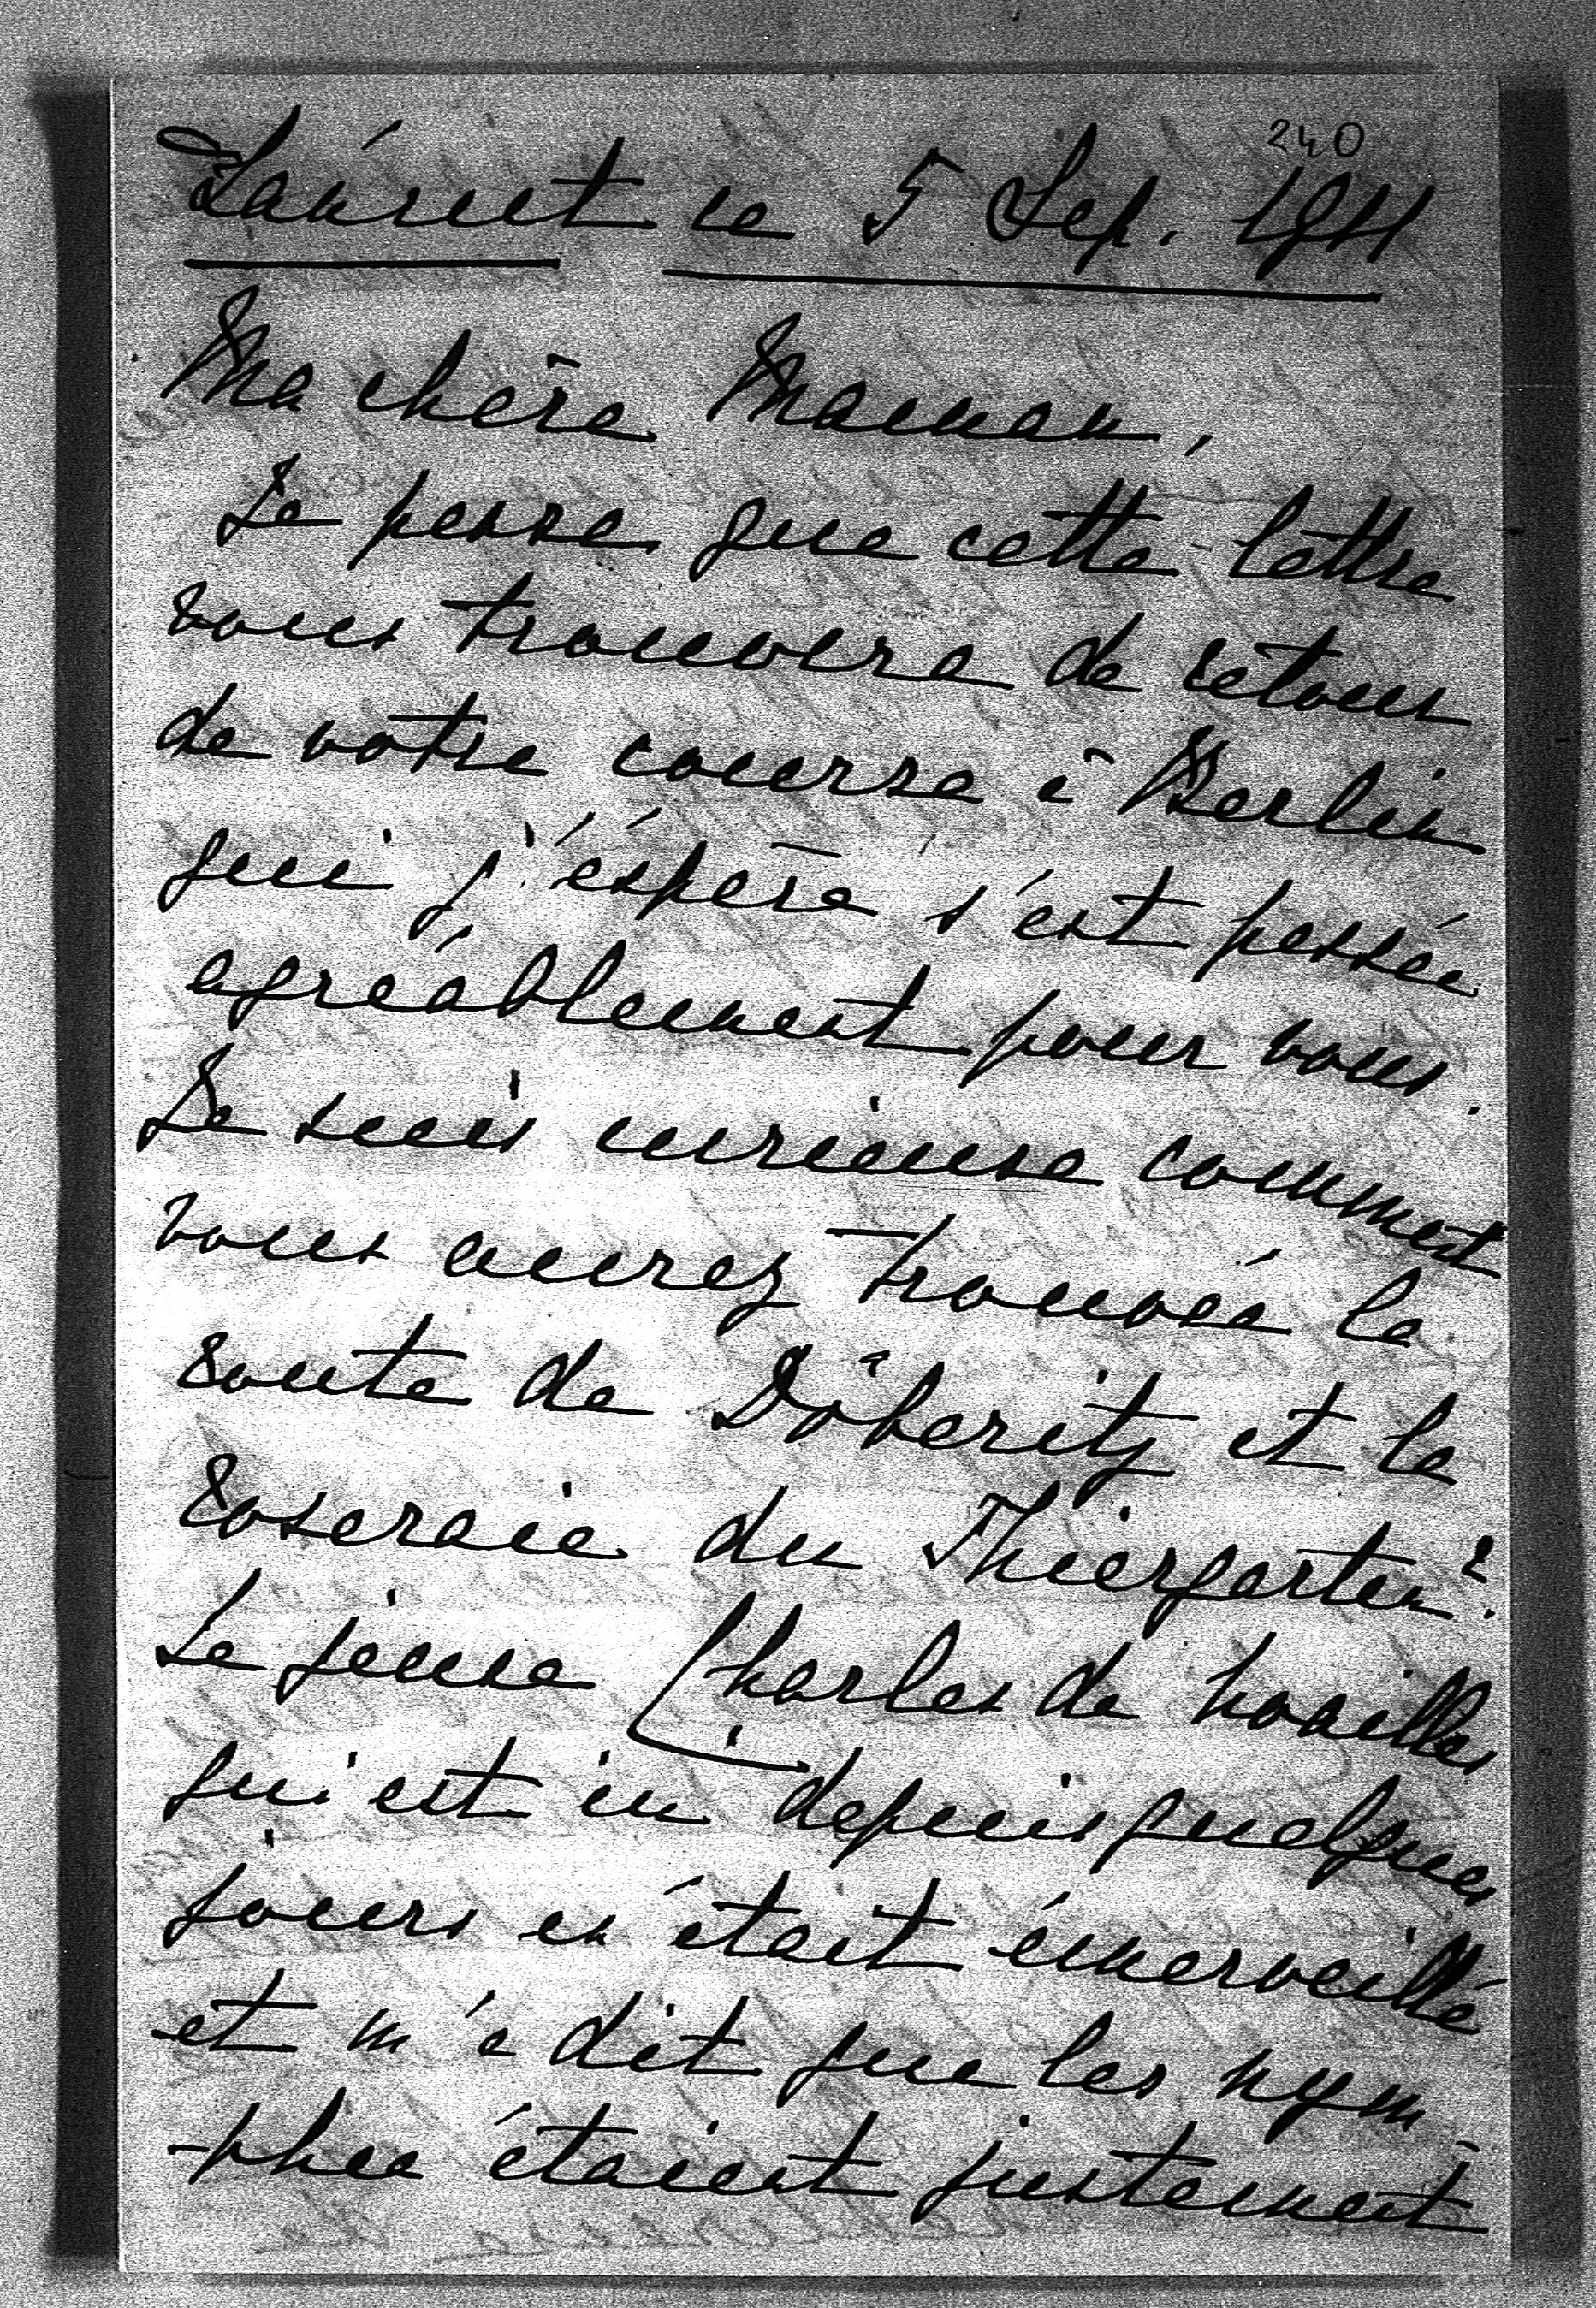 240
Łańcut ce 5 Sep. 1911
Ma chère Maman,
Je pense que cette lettre
vous trouvera de retour
de votre course à Berlin
qui j'éspère s'est passée
agréablement pour vous.
Je suis curieuse comment
vous aurez trouvée la
route de Döberitz et la
roseraie du Thiergarten?
Le jeune Charles de Noailles
qui est ici depuis quelques
jours en était émerveillé
et m'a dit que les nym
-phea étaient justement